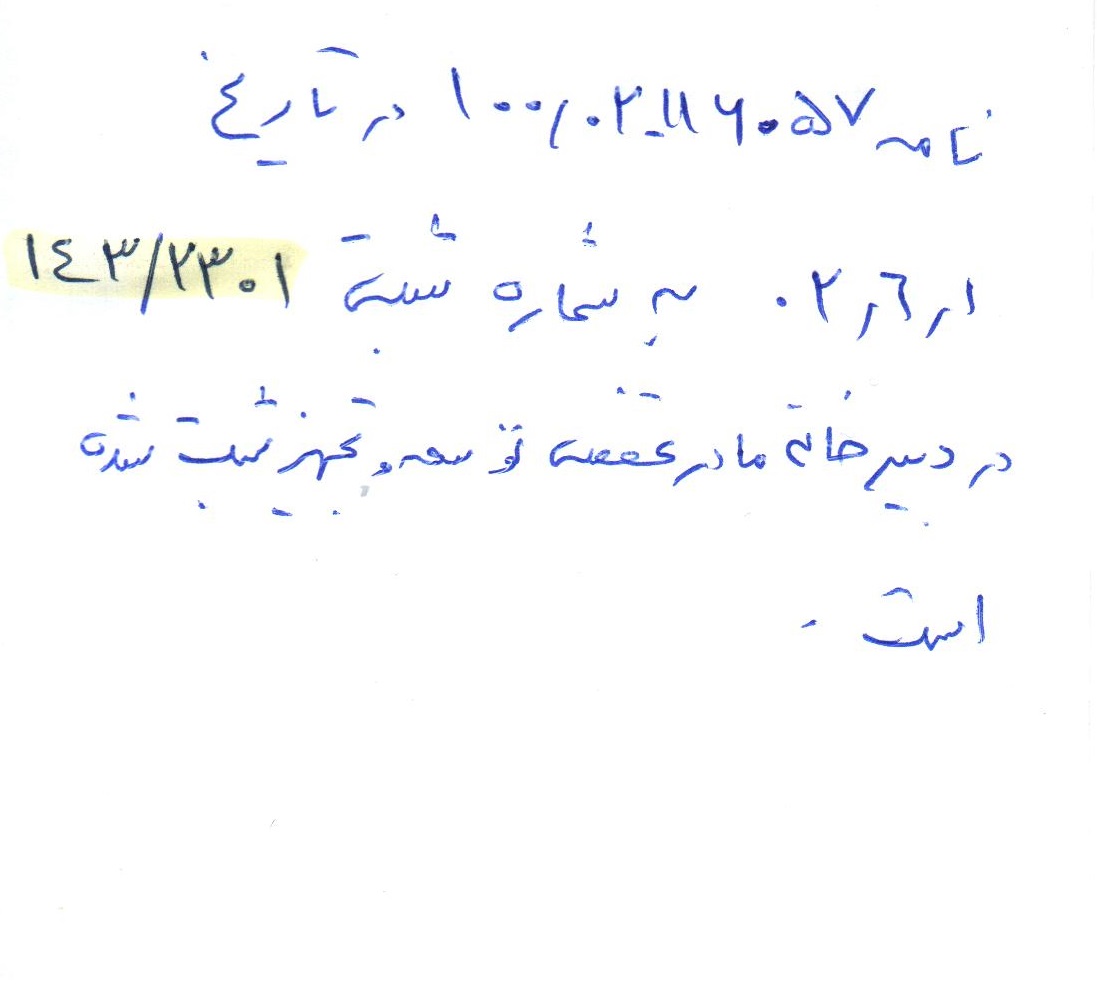 نامه ۱۰۰/۰۲-۱۱۶۰۵۷ در تاریخ
۱ر۶ر۰۲ به شماره ثبت ۱۴۳/۲۳۰۱
در دبیرخانه مادر تخصصی توسعه و تجهیز ثبت شده
است .